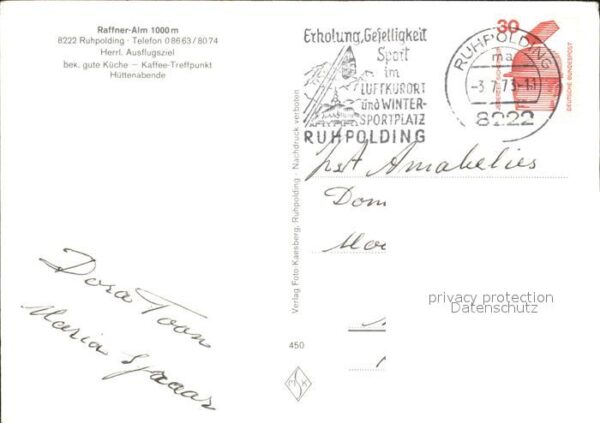 Raffner-Alm 1000 m
8222 Ruhpolding · Telefon 0 86 63 / 80 74
Herrl. Ausflugsziel
bek. gute Küche — Kaffee-Treffpunkt
Hüttenabende
Erholung, Geselligkeit
Sport
im
LUFTKURORT
und WINTER-
SPORTPLATZ
RUHPOLDING
RUHPOLDING
ma
-3.7.73-11
8222
30
DEUTSCHE BUNDESPOST
Verlag Foto-Kaesberg, Ruhpolding · Nachdruck verboten
450
Dom
privacy protection
Datenschutz
Dora Toon
Maria